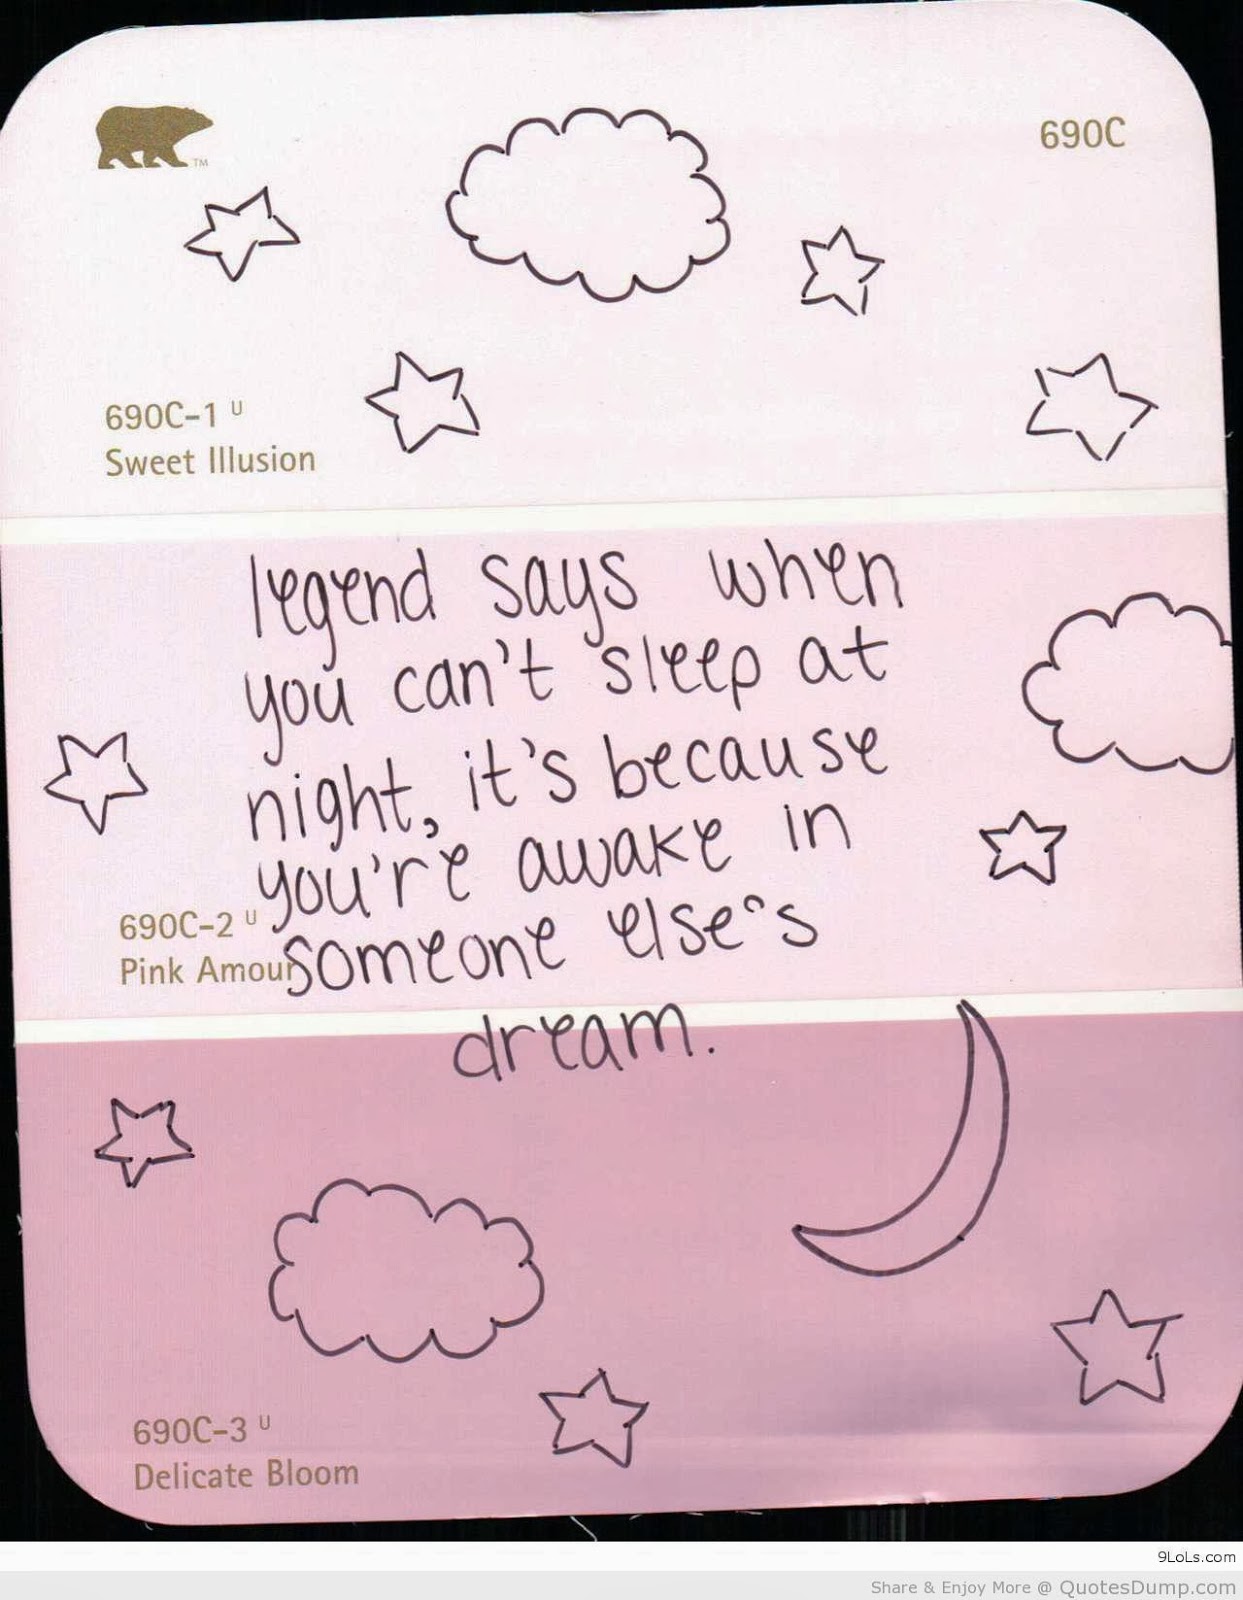 TM
690C
690C-1 U
Sweet Illusion
legend says when
you can't sleep at
night, it's because
you're awake in
someone else's
dream.
690C-2 U
Pink Amour
690C-3 U
Delicate Bloom
9LoLs.com
Share & Enjoy More @ QuotesDump.com